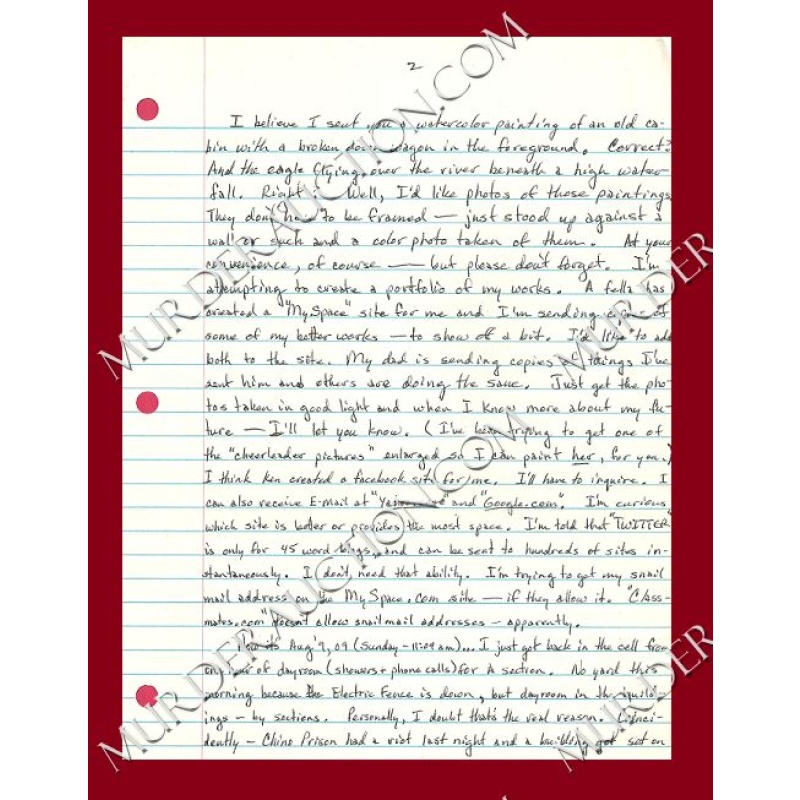 2
I believe I sent you a watercolor painting of an old ca-
bin with a broken down wagon in the foreground. Correct?
And the eagle flying over the river beneath a high water-
fall. Right? Well, I'd like photos of those paintings.
They don't have to be framed — just stood up against a
wall or such and a color photo taken of them. At your
convenience, of course — but please don't forget. I'm
attempting to create a portfolio of my works. A fella has
created a "MySpace" site for me and I'm sending of
some of my better works — to show off a bit. I'd like to add
both to the site. My dad is sending copies of things I've
sent him and others are doing the same. Just get the pho-
tos taken in good light and when I know more about my fu-
ture — I'll let you know. (I've been trying to get one of
the "cheerleader pictures" enlarged so I can paint her, for you.)
I think Ken created a facebook site for me. I'll have to inquire. I
can also receive E-mail at and "Google.com". I'm curious
which site is better or provides the most space. I'm told that "TWITTER"
is only for 45 word and can be sent to hundreds of sites in-
stantaneously. I don't need that ability. I'm trying to get my snail
mail address on the MySpace.com site — if they allow it. "Class-
mates.com" doesn't allow snail mail addresses — apparently.
Now its Aug 9, 09 (Sunday - 11:09 am)... I just got back in the cell from
hour of dayroom (showers + phone calls) for A section. No yard this
morning because the Electric Fence is down, but dayroom in the build-
ings — by sections. Personally, I doubt that's the real reason. Coinci-
dently — Chino Prison had a riot last night and a building got set on
MURDERAUCTION.COM
MURDERAUCTION.COM
MURDER
MURDER